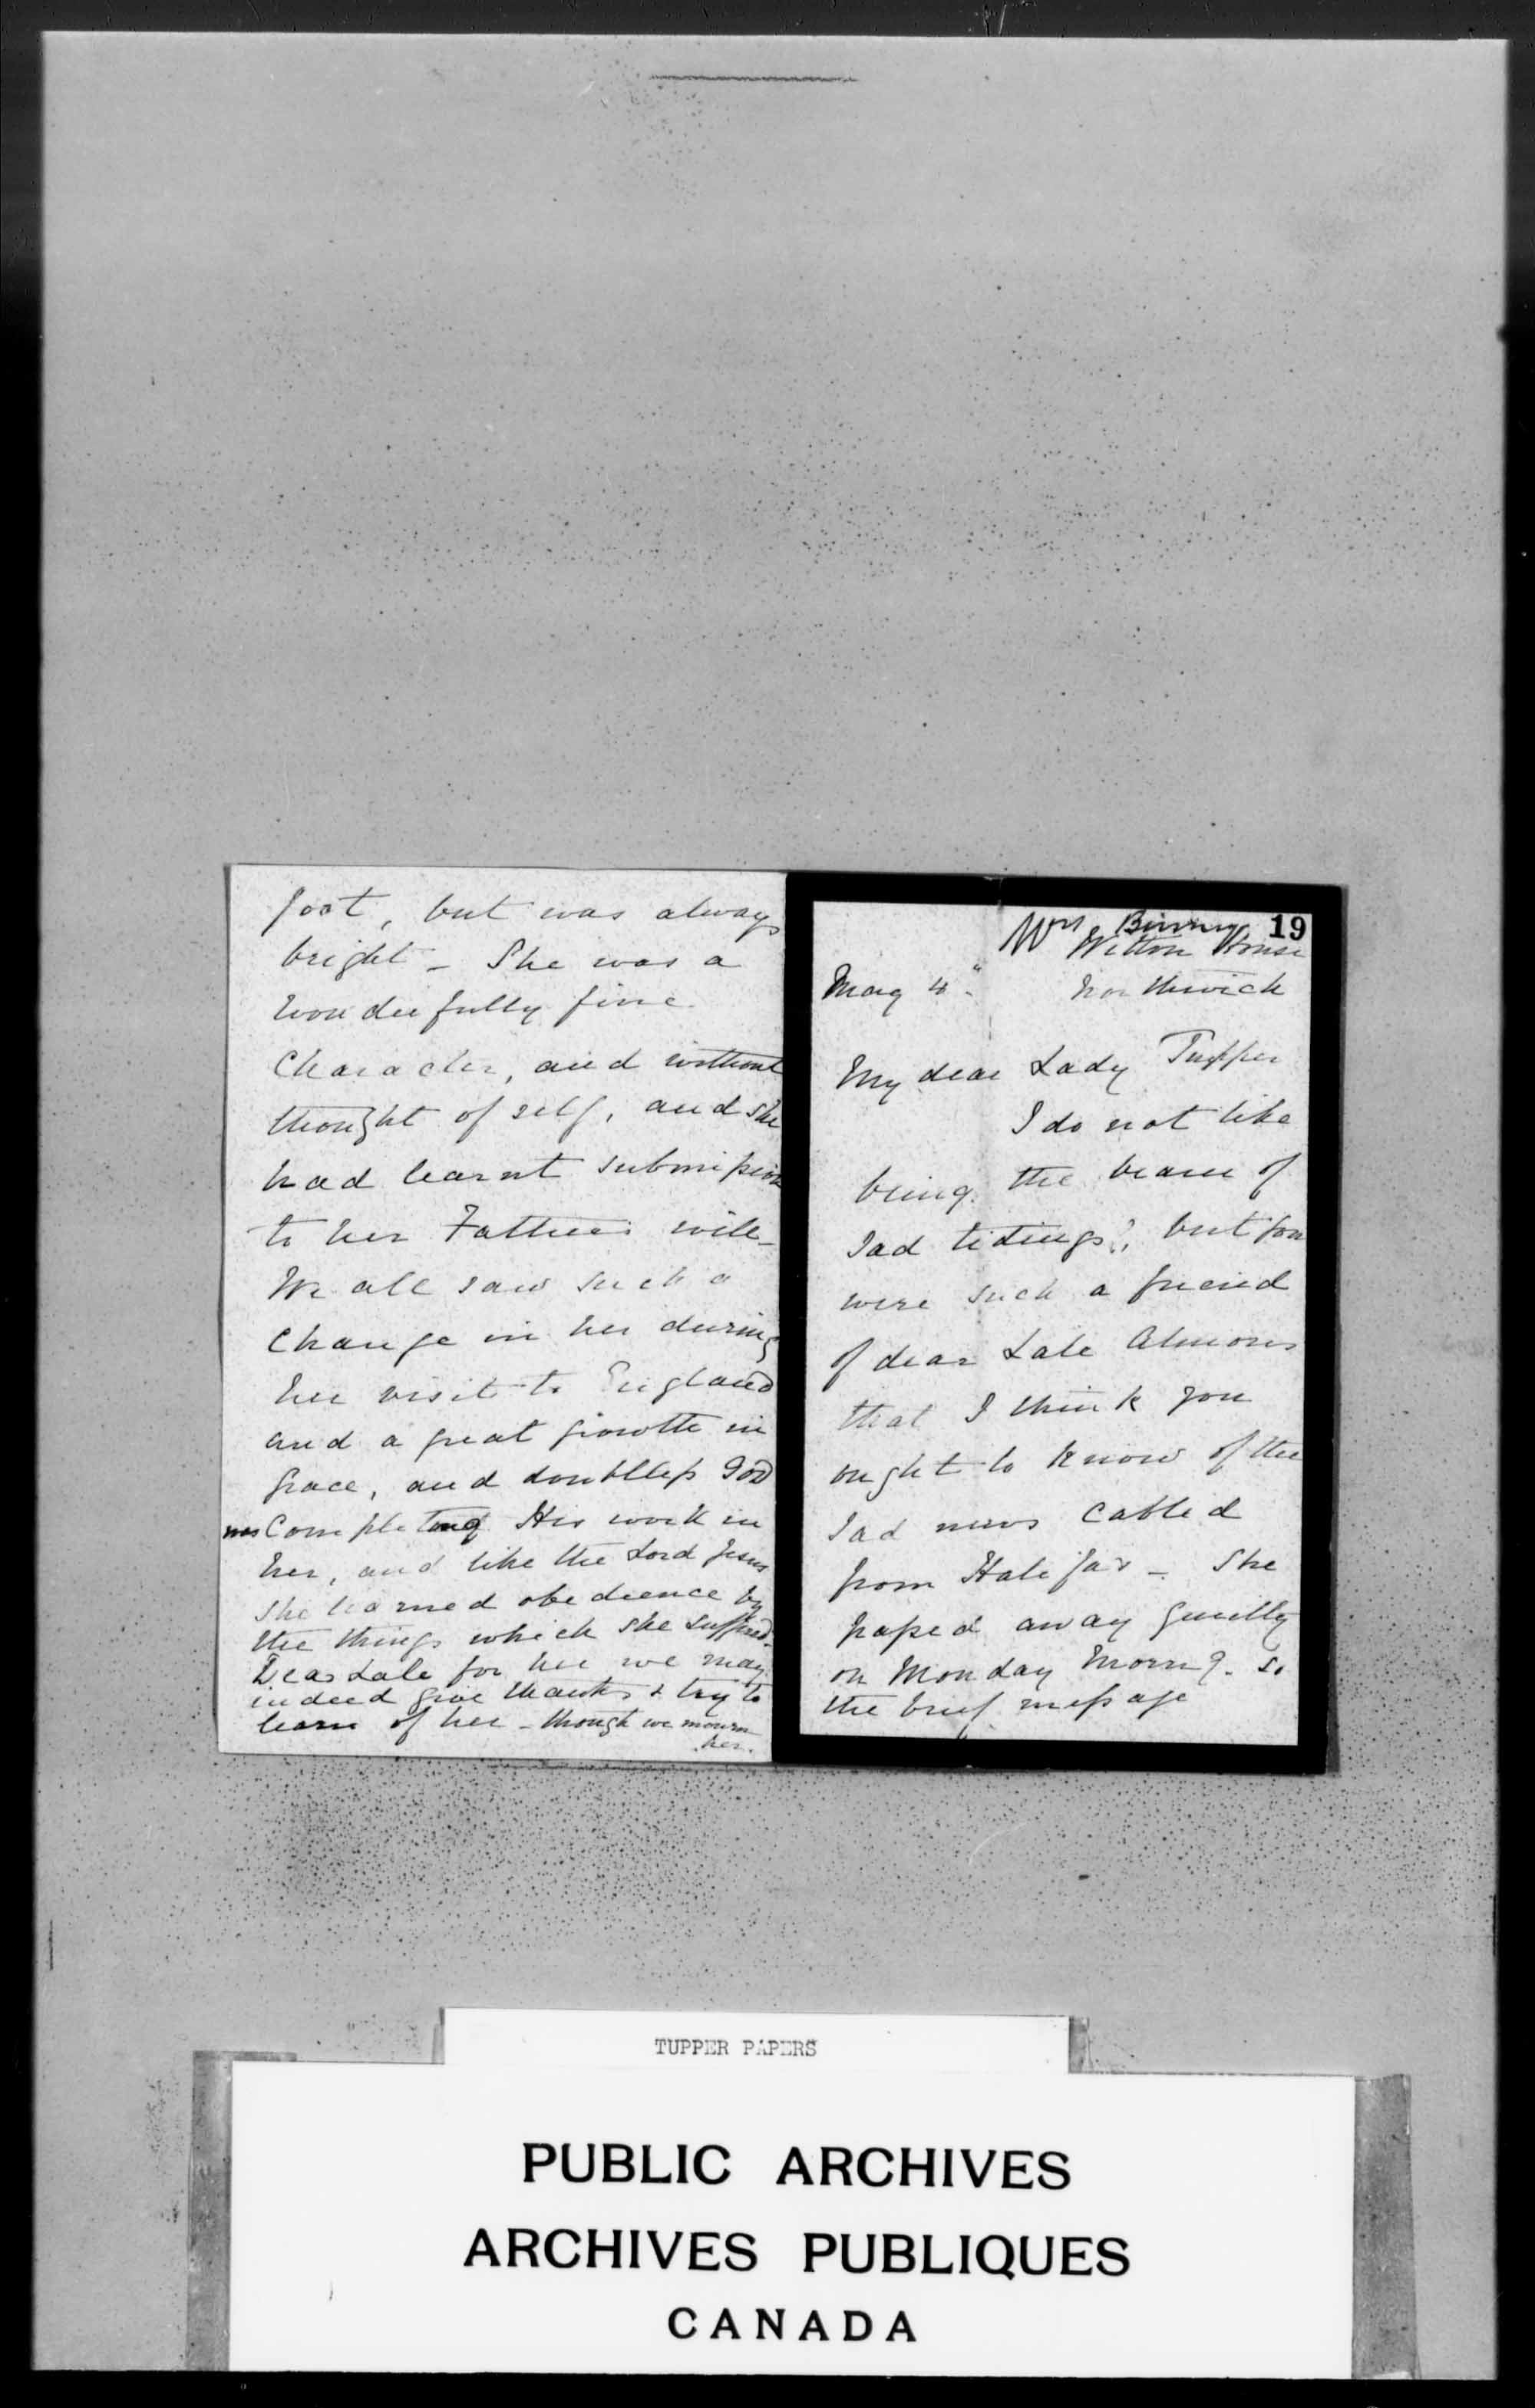 foot, but was always
bright - She was a
wonderfully fine
character, and without
thought of self, and she
had learnt submission
to her Father's will -
We all saw such a
change in her during
her visit to England
and a great growth in
grace, and doubtless God
was completing His work in
her, and like the Lord Jesus
she learned obedience by
the things which she suffered.
Dear Lale for her we may
indeed give thanks & try to
learn of her - though we mourn
her.
Mrs Binney 19
Witton House
May 4" Northwich
My dear Lady Tupper
I do not like
being the bearer of
sad tidings, but you
were such a friend
of dear Lale Almons
that I think you
ought to know of the
sad news cabled
from Halifax - She
passed away quietly
on Monday morng. so
the brief message
TUPPER PAPERS
PUBLIC ARCHIVES
ARCHIVES PUBLIQUES
CANADA